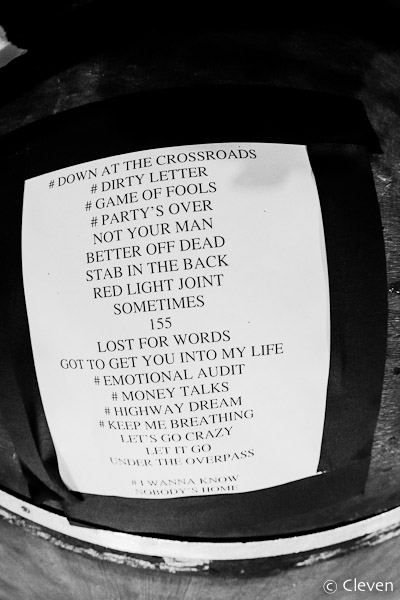 # DOWN AT THE CROSSROADS
# DIRTY LETTER
# GAME OF FOOLS
# PARTY'S OVER
NOT YOUR MAN
BETTER OFF DEAD
STAB IN THE BACK
RED LIGHT JOINT
SOMETIMES
155
LOST FOR WORDS
GOT TO GET YOU INTO MY LIFE
# EMOTIONAL AUDIT
# MONEY TALKS
# HIGHWAY DREAM
# KEEP ME BREATHING
LET'S GO CRAZY
LET IT GO
UNDER THE OVERPASS
# I WANNA KNOW
NOBODY'S HOME
© Cleven